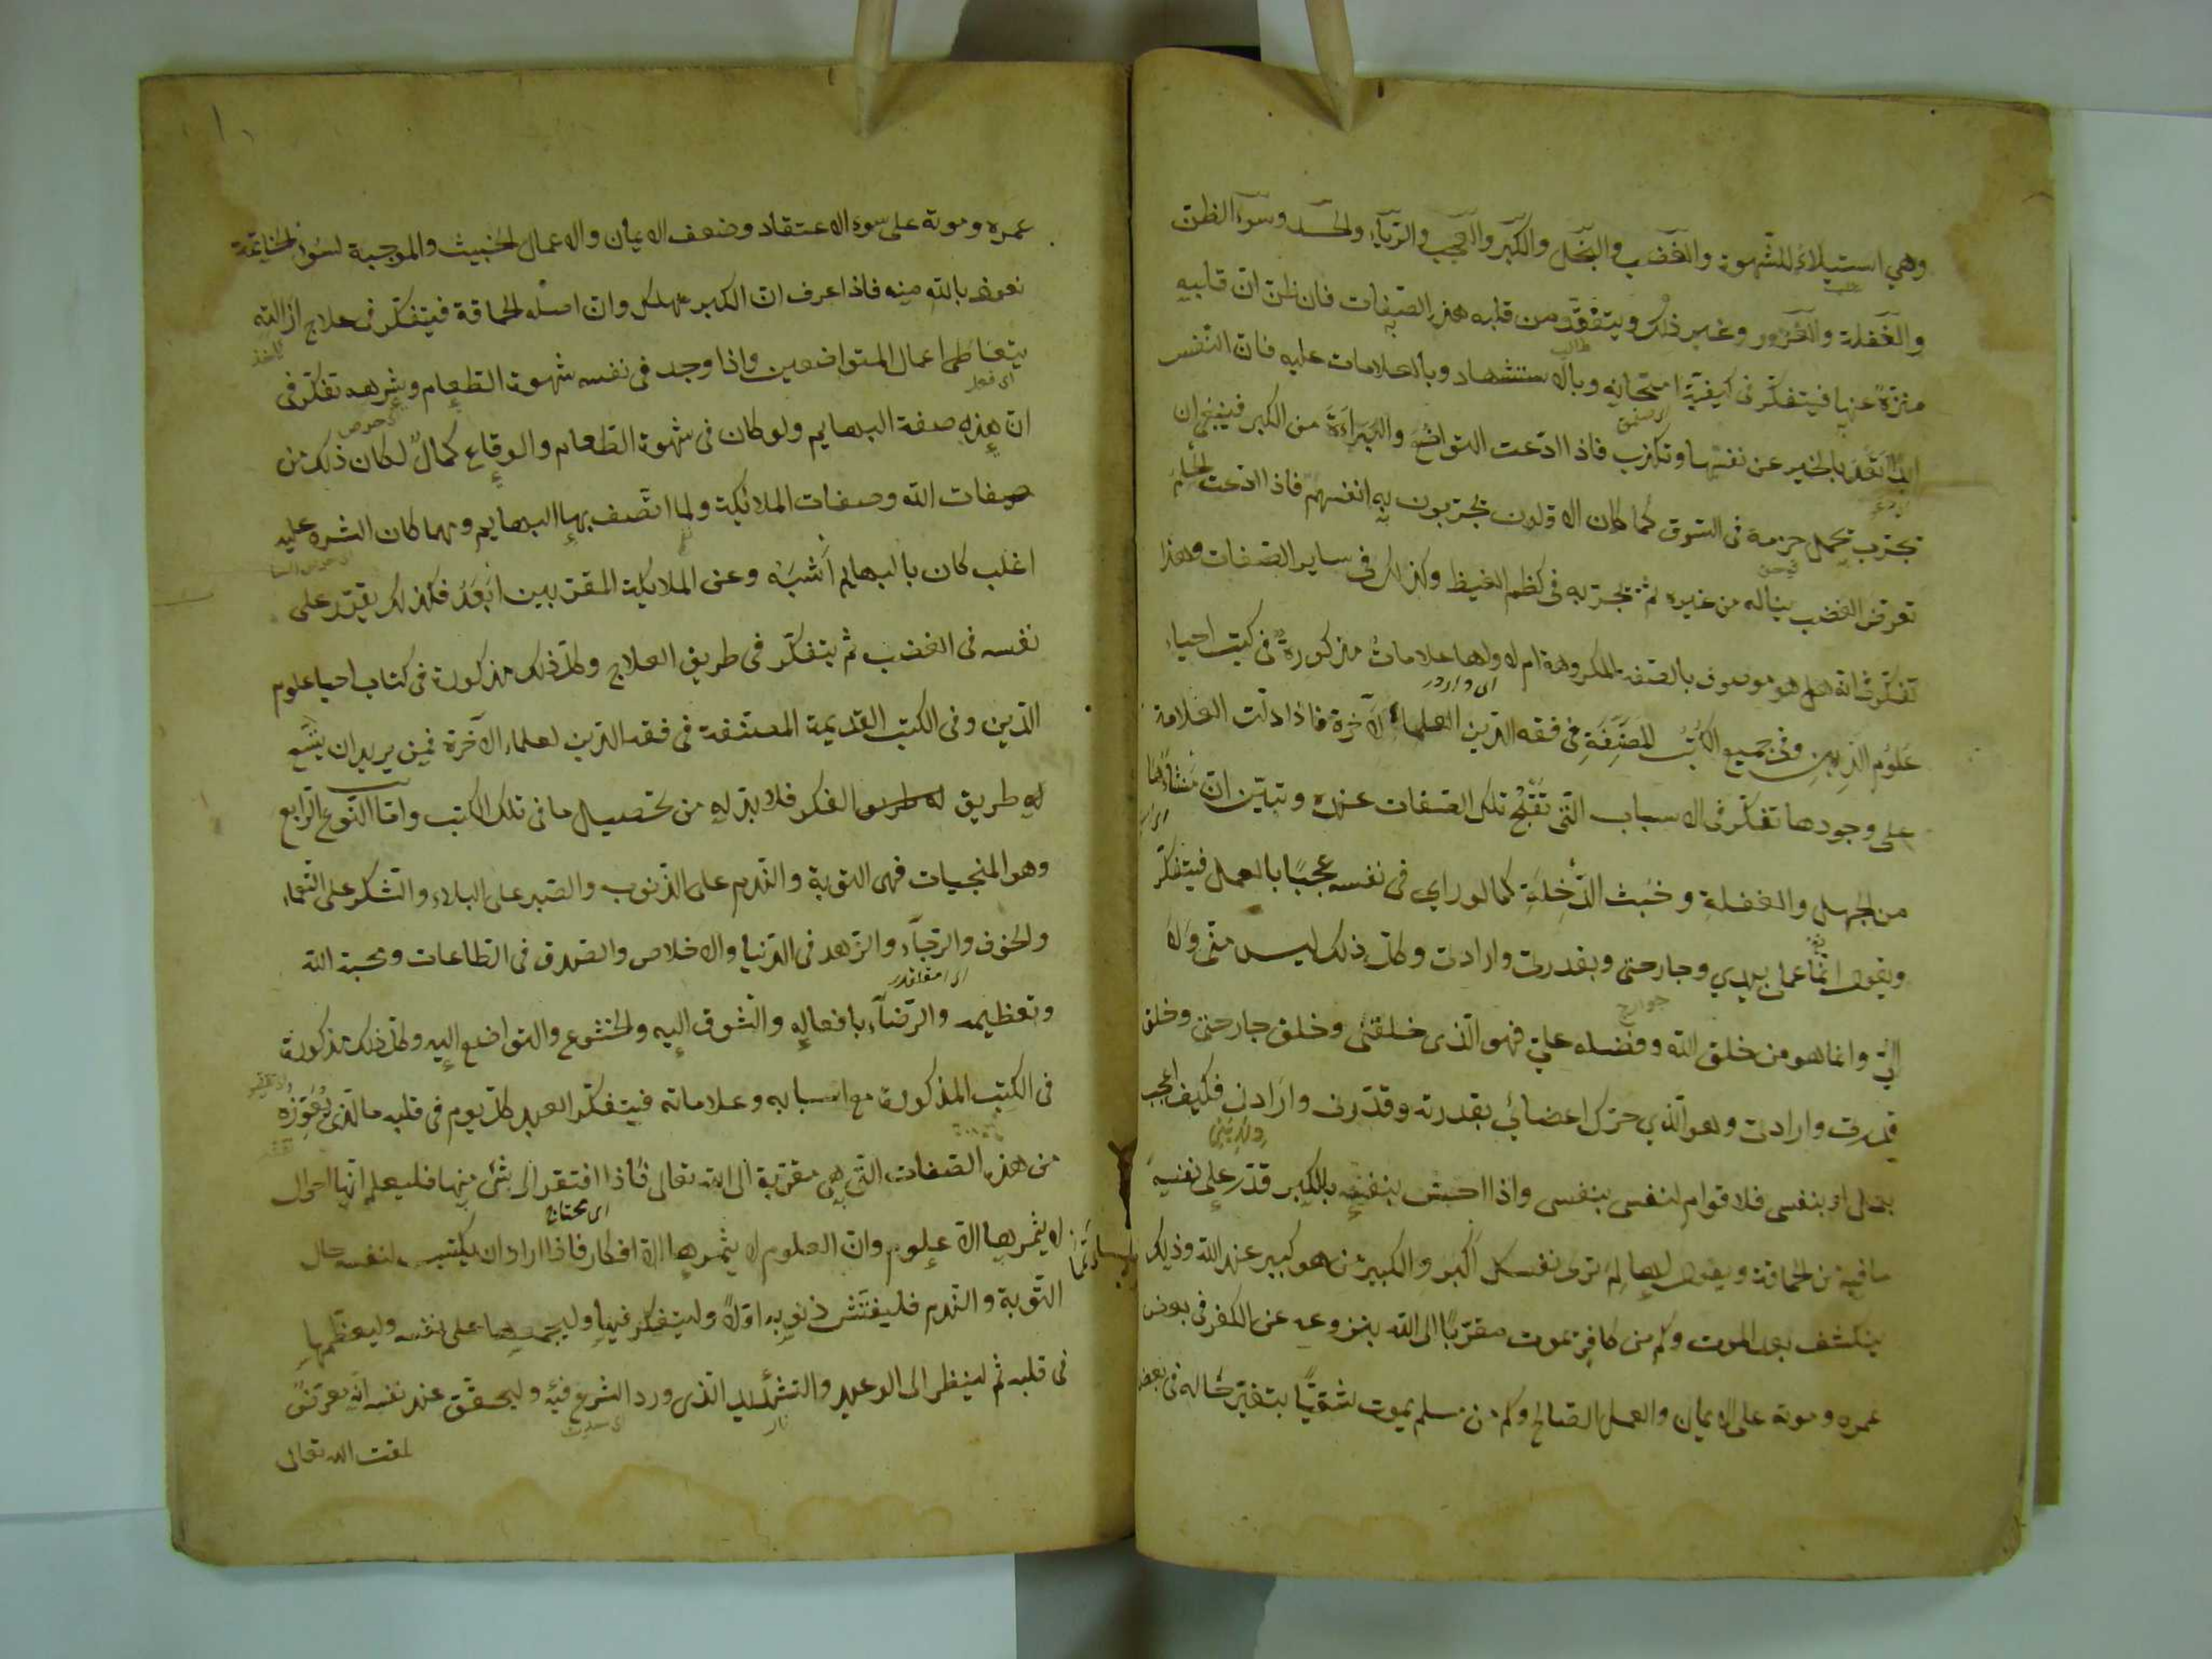 وهي استيلاء الشهوة والغضب والبخل والكبر والعجب والرياء والحسد وسوء الظن
والغفلة والغرور وغير ذلك ويتفقد من قلبه هذه الصفات فان ظن ان قلبه
منزه عنها فيتفكر في كيفية امتحانه وبالاستشهاد وبالعلامات عليه فان النفس
ابدا تعد بالخير عن نفسها وتكذب فاذا ادعت التواضع والبراءة من الكبر فينبغي ان
تجرب بحمل حزمة في السوق كما كان الاولون يجربون به انفسهم فاذا ادعت الحلم
تعرض الغضب يناله من غيره ثم تجربه في كظم الغيظ وكذلك في ساير الصفات وهذا
تفكر في انه هل هو موصوف بالصفة المكروهة ام لا ولها علامات مذكورة في كتب احياء
علوم الدين وفي جميع الكتب المصنفة في فقه الدين العلماء الآخرة فاذا دلت العلامة
على وجودها تفكر في الاسباب التي تقبح تلك الصفات عنده وتبين ان منشأها
من الجهل والغفلة وخبث الدخلة كما لو راي في نفسه عجبا بالعمل فيتفكر
ويقول انما عملي بيدي وجارحتي وبقدرتي وارادتي وكل ذلك ليس مني ولا
الي وانما هو من خلق الله وفضله علي فهو الذي خلقني وخلق جارحتي وخلق
قدرتي وارادتي وهو الذي حرك اعضائي بقدرته وقدرتي وارادتي فكيف اعجب
بعملي او بنفسي فلا قوام لنفسي بنفسي واذا احس بنفسه بالكبر قدر على نفسه
ما فيه من الحماقة ويقول لها لم ترى نفسك اكبر والكبير من هو كبير عند الله وذلك
ينكشف بعد الموت وكم من كافر يموت مقربا الى الله بنزوعه عن الكفر في بعض
عمره وموته على الايمان والعمل الصالح وكم من مسلم يموت شقيا بتغير حاله في بعض
عمره وموته على سوء الاعتقاد وضعف الايمان والاعمال الخبيث والموجبة لسوء الخاتمة
نعوذ بالله منه فاذا عرف ان الكبر مهلك وان اصله الحماقة فيتفكر في علاج ازالته
يتعاطى اعمال المتواضعين واذا وجد في نفسه شهوة الطعام وشرهه تفكر في
ان هذه صفة البهايم ولو كان في شهوة الطعام والوقاع كمال لكان ذلك من
صفات الله وصفات الملائكة ولما اتصف بها البهايم ومهما كان الشره عليه
اغلب كان بالبهايم اشبه وعن الملايكة المقربين ابعد فكذلك يقرر على
نفسه في الغضب ثم يتفكر في طريق العلاج وكل ذلك مذكورة في كتاب احيا علوم
الدين وفي الكتب القديمة المصنفة في فقه الدين لعلماء الآخرة فمن يريد ان يتسع
له طريق الفكر فلا بد له من تحصيل ما في تلك الكتب واما النوع الرابع
وهو المنجيات فهي التوبة والندم على الذنوب والصبر على البلاء والشكر على النعماء
والخوف والرجاء والزهد في الدنيا والاخلاص والصدق في الطاعات ومحبة الله
وتعظيمه والرضاء بافعاله والشوق اليه والخشوع والتواضع اليه وكل ذلك مذكورة
في الكتب المذكورة مع اسبابه وعلاماته فيتفكر العبد كل يوم في قلبه ما الذي يعوزه
من هذه الصفات التي هي مقربة الى الله تعالى فاذا افتقر الى شئ منها فليعلم انها احوال
لا يثمرها الا علوم وان العلوم لا يثمرها الا افكار فاذا اراد ان يكتسب لنفسه حال
التوبة والندم فليفتش ذنوبه اولا وليتفكر فيها وليجمعها على نفسه وليعظمها
في قلبه ثم لينظر الى الوعيد والتشديد الذي ورد الشرع فيه وليحقق عند نفسه انه تعرض
لمقت الله تعالى